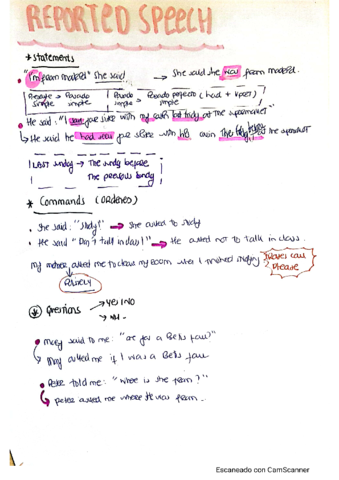 REPORTED SPEECH
* Statements
"I'm from Madrid" She said → She said he was from Madrid.
Presente → Pasado | Pasado → Pasado perfecto (had + Vpast)
simple simple | simple simple
He said: "I saw your sister with my cousin last Sunday at the supermarket"
He said he had seen your sister with his cousin the Sunday before at the supermarket
Last Sunday → The Sunday before
The previous Sunday
* Commands (Ordenes)
She said: "Study!" → She asked to study
He said "Don't talk in class!" → He asked not to talk in class.
My mother asked me to clean my room when I finished studying
Please
Politely
* Questions → YES/NO
→ WH-
Mary said to me: "are you a Betis fan?"
Mary asked me if I was a Betis fan
Peter told me: "Where is she from?"
Peter asked me where she was from.
Escaneado con CamScanner